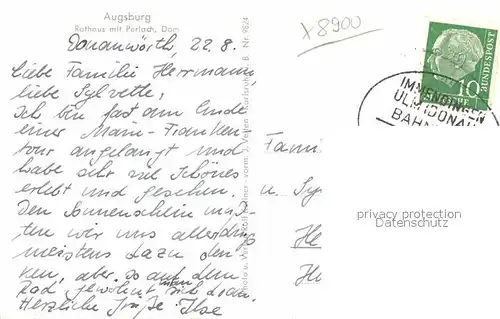 Augsburg
Rathaus mit Perlach, Dom
x 8900
Donauwörth, 22.8.
Liebe Familie Herrmann,
liebe Sylvette,
Ich bin fast am Ende
einer Main-Franken
tour angelangt und
habe sehr viel Schönes
erlebt und gesehen.
Den Sonnenschein muß-
ten wir uns allerdings
meistens dazu den-
ken, aber so auf dem
Rad gewöhnt man sich dran.
Herzliche Grüße Ilse
B. Nr. 9824
10
BUNDESPOST
IMMENDINGEN
ULM (DONAU)
BAHN
Fami
u. Sy
He
privacy protection
Datenschutz